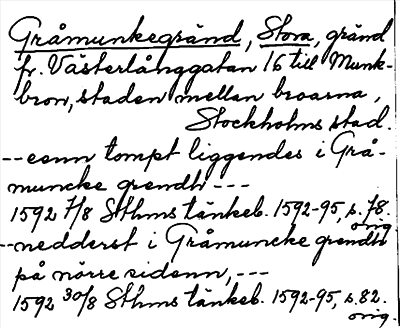 Gråmunkegränd, Stora, gränd
fr. Västerlånggatan 16 till Munk-
bron, staden mellan broarna,
Stockholms stad.
--eenn tompt liggendes i Grå-
muncke grendh ---
1592 7/8 Sthms tänkeb. 1592-95, s. 78.
orig.
--nedderst i Gråmuncke grendh
på nörre sidenn, ---
1592 30/8 Sthms tänkeb. 1592-95, s. 82.
orig.